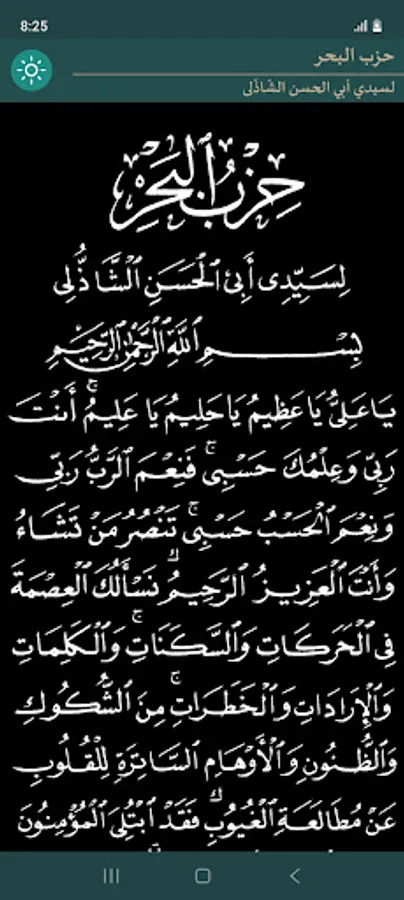 8:25
حزب البحر
لسيدي أبي الحسن الشاذلي
حِزْبُ الْبَحْرِ
لِسَيِّدِى أَبِى الْحَسَنِ الشَّاذُلِى
بِسْمِ اللَّهِ الرَّحْمَٰنِ الرَّحِيمِ
يَا عَلِىُّ يَا عَظِيمُ يَا حَلِيمُ يَا عَلِيمُ أَنْتَ
رَبِّى وَعِلْمُكَ حَسْبِى فَنِعْمَ الرَّبُّ رَبِّى
وَنِعْمَ الْحَسْبُ حَسْبِى تَنْصُرُ مَنْ تَشَاءُ
وَأَنْتَ الْعَزِيزُ الرَّحِيمُ نَسْأَلُكَ الْعِصْمَةَ
فِى الْحَرَكَاتِ وَالسَّكَنَاتِ وَالْكَلِمَاتِ
وَالْإِرَادَاتِ وَالْخَطَرَاتِ مِنَ الشُّكُوكِ
وَالظُّنُونِ وَالْأَوْهَامِ السَّاتِرَةِ لِلْقُلُوبِ
عَنْ مُطَالَعَةِ الْغُيُوبِ فَقَدِ ابْتُلِىَ الْمُؤْمِنُونَ